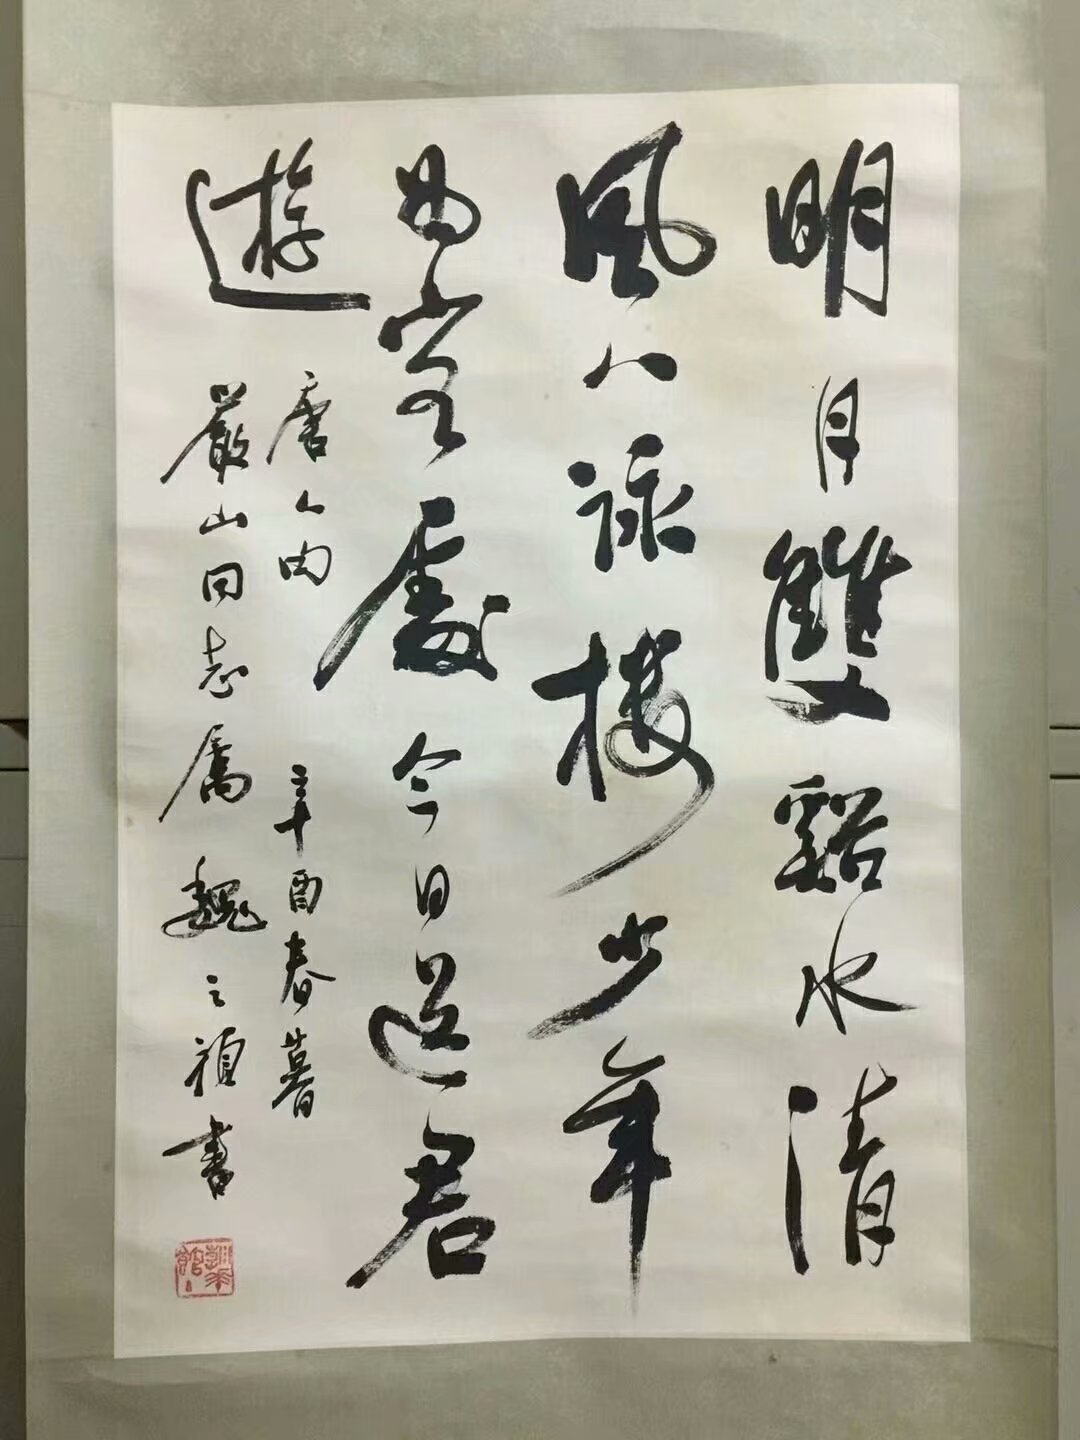 明月雙谿水清
風八詠樓少年
為客處今日送君
遊
唐人句 辛酉春暮
嚴山同志屬 魏之禎書